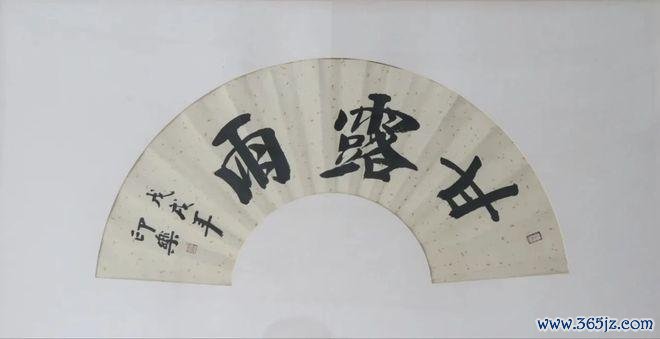 甘露雨
戊戌年
印樂
www.365jz.com